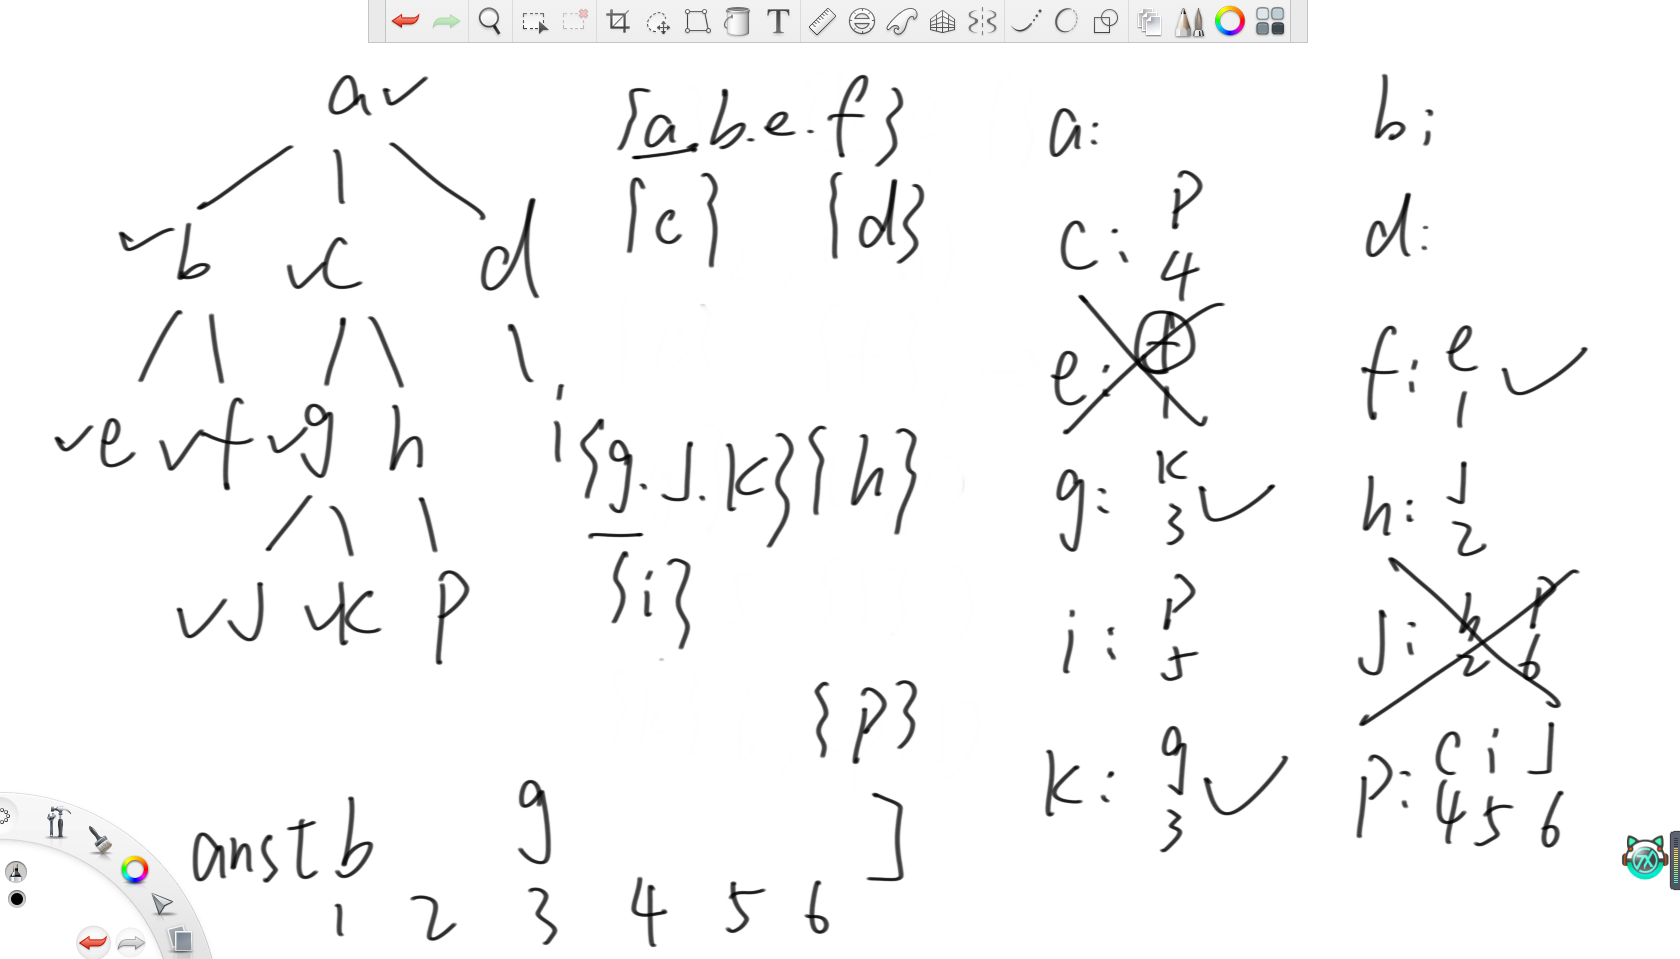 a
b c d
e f g h i
J k p
{a.b.e.f}
{c} {d}
{g.J.k} {h}
{i}
{p}
ans[ b g ]
1 2 3 4 5 6
a:
b:
c: p
4
d:
e: f
1
f: e
1
g: k
3
h: J
2
i: p
5
J: h p
2 6
k: g
3
p: c i J
4 5 6
T
7X